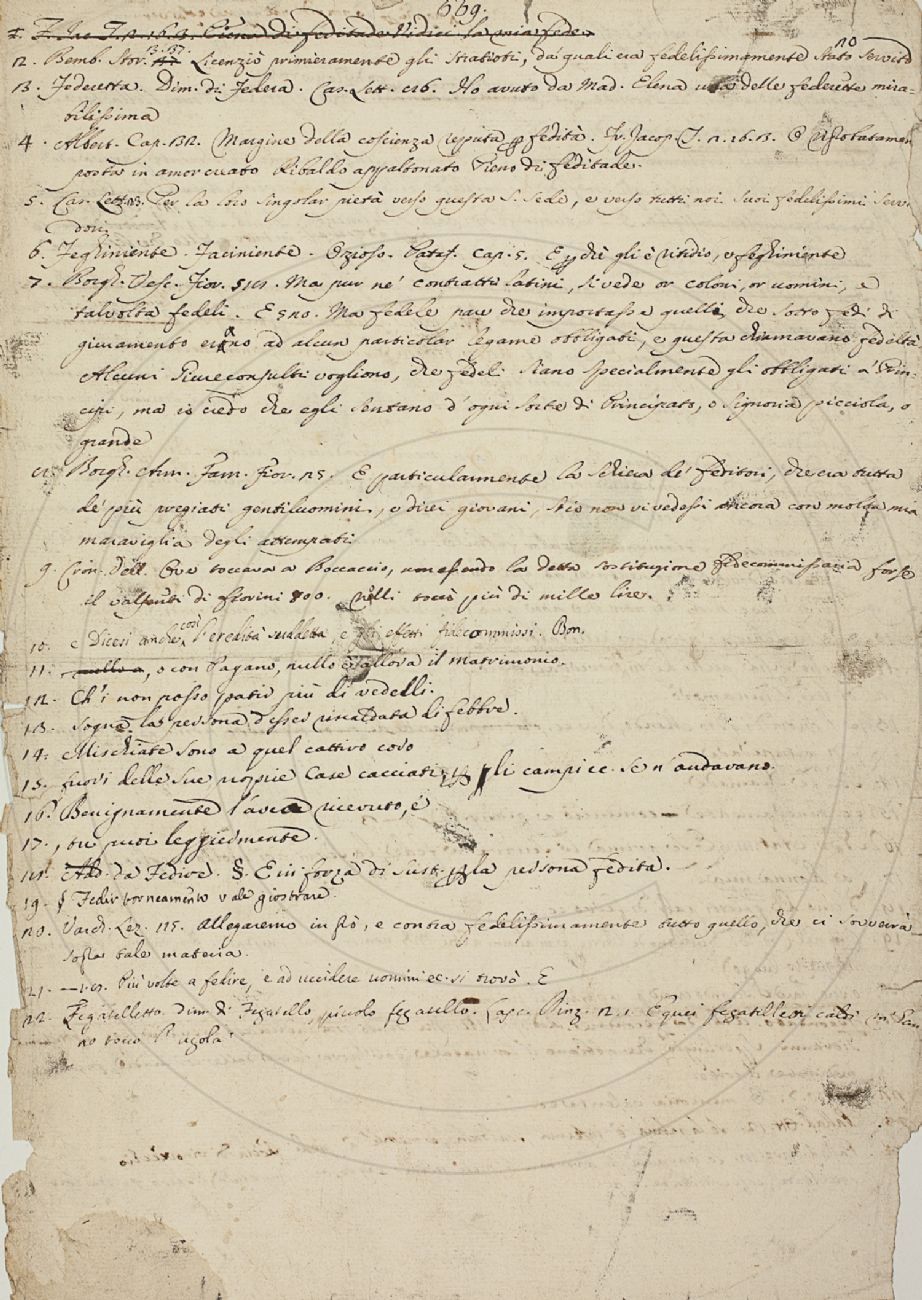 669.
1. F. Jac. T. 2. 16. 13. Pieno di feditade Vidici la mia fede
2. Bemb. Stor. 3. 37. Licenziò primieramente gli Stratioti, da' quali era fedelissimamente stato servito
3. Federetta. Dim. di Federa. Car. Lett. 26. Ho avuto da Mad. Elena una delle federette mira-
bilissima
4. Albert. Cap. 132. Margine della coscienza reputa fedità. Fr. Jacop. T. 2. 16. 13.
posta in amor creato Ribaldo appaltonato Pieno di feditade.
5. Car. Lett. Per la loro singolar pietà verso questa S. Sede, e verso tutti noi suoi fedelissimi Serv
dori
6. Feghiniente. Faciniente. Ozioso. Pataf. cap. 5. E perchè gli è nitidio, e feghiniente
7. Borgh. Vesc. Fior. 519. Ma pur ne' contratti latini, si vede or coloni, or uomini, e
talvolta fedeli. E 520. Ma fedele pare che importasse quelli, che sotto fede di
giuramento erano ad alcun particolar legame obbligati, e questa chiamavano fedeltà
Alcuni Giureconsulti vogliono, che fedeli siano specialmente gli obbligati a' Prin-
cipi, ma io credo che egli sentano d'ogni sorte di Principato, o Signoria picciola, o
grande
8. Borgh. Arm. Fam. Fior. 25. E particularmente la schiera de' feditori, che era tutta
de' più pregiati gentiluomini, e direi giovani, se io non vi vedessi ancora con molta mia
maraviglia degli attempati
9. Cron. Vell. Ove toccava a Boccaccio, non essendo la detta sostituzione fidecommissaria forse
il valsente di fiorini 800. nolli toccò più di mille lire.
10. e Dicesi anche così l'eredità suddetta, e gli effetti fidecommissi. Bon.
11. , o con Pagano, nullo è allora il matrimonio.
12. Ch'i non posso patir più di vedelli.
13. Sogna la persona d'esser riscaldata di febbre.
14. Mischiate sono a quel cattivo coro
15. fuori delle sue proprie case cacciati, per li campi ec. se n'andavano.
16. Benignamente l'avea ricevuto, e
17. , tu puoi leggiermente.
18. Add. da Fedire. §. E in forza di Sust. per la persona fedita.
19. § Fedir torneamento vale giostrare
20. Varch. Lez. 115. Allegaremo in prò, e contra fedelissimamente tutto quello, che ci sovverrà
sopra tale materia.
21. Più volte a fedire, e ad uccidere uomini ec. si trovò. E
22. Fegatelletto. Dim. di Fegatello, picciolo fegatello. Lasc. Pinz. 2. 1. E quei fegatelletti caldi m'han
no tocco l'ugola.